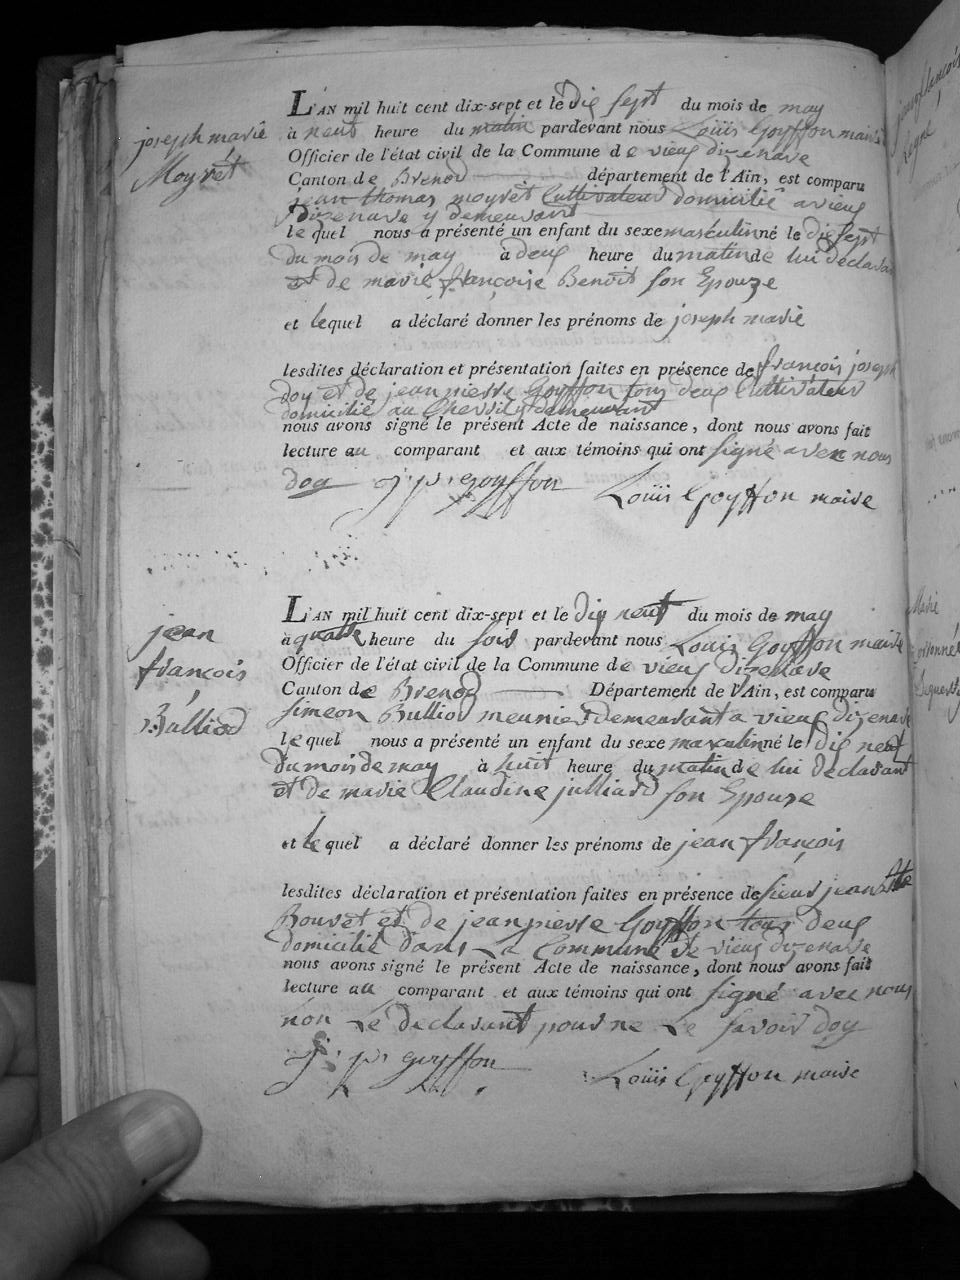 joseph marie
Moyrét
L'AN mil huit cent dix-sept et le dix sept du mois de may
à neuf heure du matin pardevant nous Louis Goyffon maire
Officier de l'état civil de la Commune de vieux dizenave
Canton de Brenod département de l'Ain, est comparu
jean thomas moyret Cultivateur domicilié a vieux
Dizenave y demeurant
lequel nous a présenté un enfant du sexe masculin né le dix sept
du mois de may à deux heure du matin de lui déclarant
et de marie françoise Benoit son Epouze
et lequel a déclaré donner les prénoms de joseph marie
lesdites déclaration et présentation faites en présence de françois joseph
doy et de jean pierre Goyffon tous deux Cultivateur
domicilié au Chevrily demeurant
nous avons signé le présent Acte de naissance, dont nous avons fait
lecture au comparant et aux témoins qui ont signé avec nous
doy j. p. goyffon Louis Goyffon maire
jean
françois
Bulliod
L'AN mil huit cent dix-sept et le dix neuf du mois de may
à quatre heure du soir pardevant nous Louis Goyffon maire
Officier de l'état civil de la Commune de vieux dizenave
Canton de Brenod Département de l'Ain, est comparu
simeon Bulliod meunier demeurant a vieux dizenave
lequel nous a présenté un enfant du sexe masculin né le dix neuf
du mois de may à huit heure du matin de lui déclarant
et de marie Claudine julliard son Epouze
et lequel a déclaré donner les prénoms de jean françois
lesdites déclaration et présentation faites en présence de sieur jean btte
Bouvet et de jean pierre Goyffon tous deux
domicilié dans La Commune de vieux dizenave
nous avons signé le présent Acte de naissance, dont nous avons fait
lecture au comparant et aux témoins qui ont signé avec nous
nón Le declarant pour ne Le savoir doy
j. p. goyffon Louis Goyffon maire